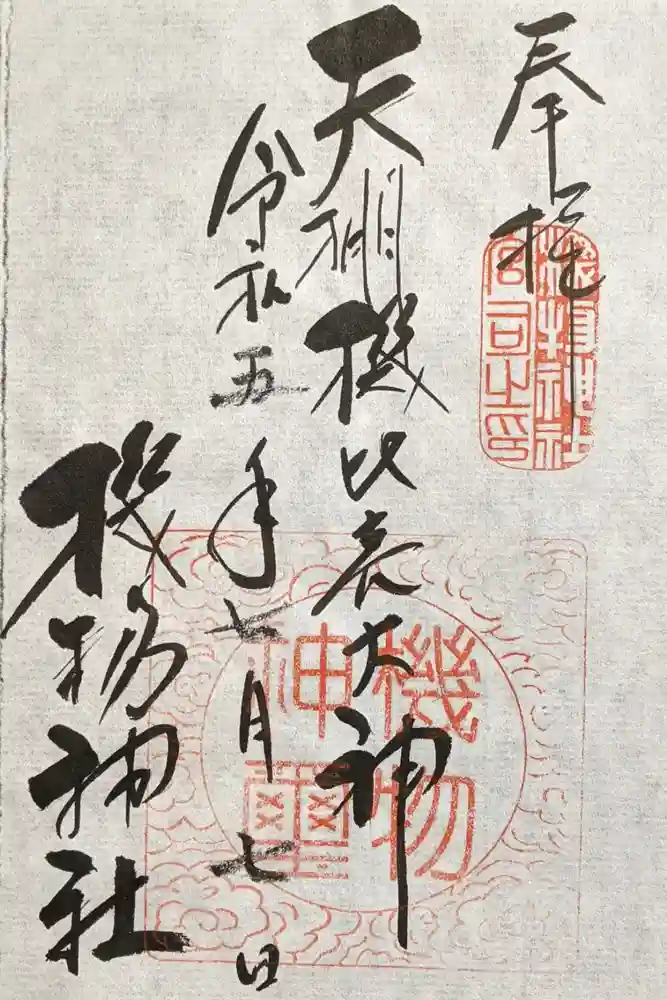 奉拝
機物神社
宮司之印
天棚機比売大神
機物
神璽
令和五年七月七日
機物神社